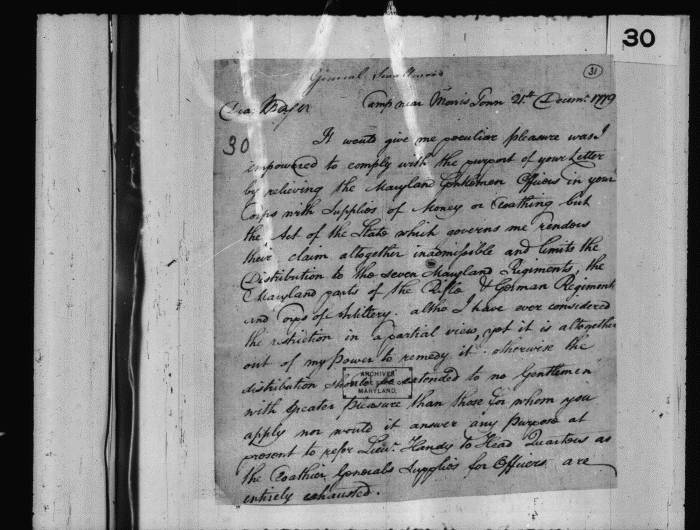 30
General Smallwood
31
Dear Major
Camp near Morris Town 21st Decemr. 1779
30
It would give me peculiar pleasure was I
empowered to comply with the purport of your Letter
by relieving the Maryland Gentlemen Officers in your
Corps with Supplies of Money or Cloathing but
the Act of the State which governs me renders
their claim altogether inadmissible and limits the
Distribution to the seven Maryland Regiments, the
Maryland parts of the Rifle & German Regiment
and Corps of Artillery. altho I have ever considered
the restriction in a partial view, yet it is altogether
out of my Power to remedy it. otherwise the
distribution should be extended to no Gentlemen
ARCHIVES
MARYLAND
with greater pleasure than those for whom you
apply nor would it answer any Purpose at
present to refer Lieut. Handy to Head Quarters as
the Cloathier Generals Supplies for Officers are
entirely exhausted.